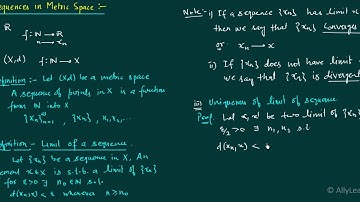 Sequences in Metric Space :-
R f : N → R
n → xn
(X,d) f : N → X
Definition :- Let (X,d) be a metric space
A sequence of points in X is a function
from N into X
{xn}, {xn}, x1, x2, ...
Definition - Limit of a sequence.
Let {xn} be a sequence in X, An
element x∈X is s.t.b a limit of {xn}
for ε>0 ∃ n0∈N s.t.
d(xn,x) < ε whenever n≥n0
Note:- i) If a sequence {xn} has limit
then we say that {xn} converges
or xn → x
ii) If {xn} does not have limit
we say that {xn} is divergent
iii) Uniqueness of limit of sequence
Proof: Let x, x' be two limit of {xn}
ε/2 >0 ∃ n1, n2 s.t.
d(xn,x) <